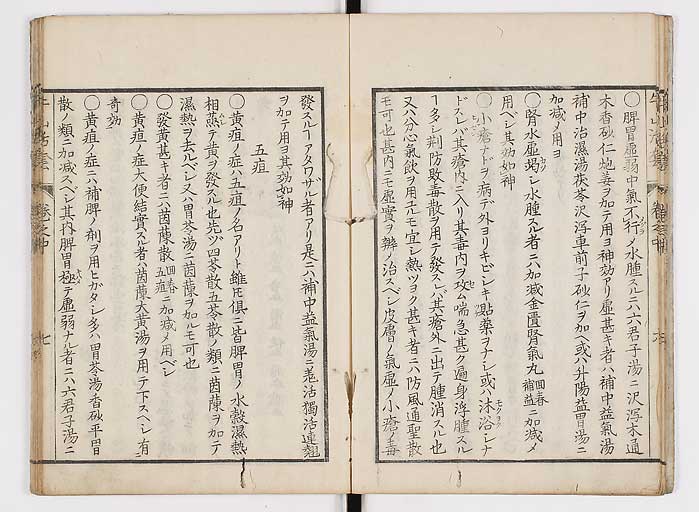 〇脾胃虛弱中氣不行ノ水腫スルニハ六君子湯ニ沢瀉木通
木香砂仁炮姜ヲ加テ用ヨ神効アリ虛甚キ者ハ補中益氣湯
補中治濕湯茯苓沢瀉車前子砂仁ヲ加ヘ或ハ升陽益胃湯ニ
加减メ用ヨ
〇腎水虛竭シ水腫スル者ニハ加减金匱腎氣丸回春補益ニ加减メ
用ベシ其効如神
〇小瘡ナドヲ病デ外ヨリキビシキ貼薬ヲナシ或ハ沐浴シナ
ドスレバ其瘡内ニ入リ其毒内ヲ攻メ喘急甚ク遍身浮腫スル
ー多シ荆防敗毒散ヲ用テ發スレバ其瘡外ニ出テ腫消スル也
又ハ分心氣飲ヲ用ユルモ宜シ熱ツヨク甚キ者ニハ防風通聖散
モ可也甚内ニモ虛實ヲ辨メ治スベシ皮膚ノ氣虛ノ小瘡ノ毒
發スルーアタワザル者アリ是ニハ補中益氣湯ニ羗活獨活連翹
ヲ加テ用ヨ其効如神
五疸
〇黄疸ノ症ハ五疸ノ名アリト雖モ俱ニ皆脾胃ノ水穀濕熱
相蒸テ黄ヲ發スル也先ヅ四苓散五苓散ノ類ニ茵蔯ヲ加テ
濕熱ヲ去ルベシ又ハ胃苓湯ニ茵蔯ヲ加ルモ可也
〇發黄甚キ者ニハ茵蔯散回春五疸ニ加减メ用ベシ
〇黄疸ノ症大便結實スル者ハ茵蔯大黄湯ヲ用テ下スベシ有
奇効
〇黄疸ノ症ニハ補脾ノ剤ヲ用ヒガタシ多ハ胃苓湯香砂平胃
散ノ類ニ加减スベシ其内脾胃極テ虛弱ナル者ニハ六君子湯ニ
牛山活套
卷之中
七